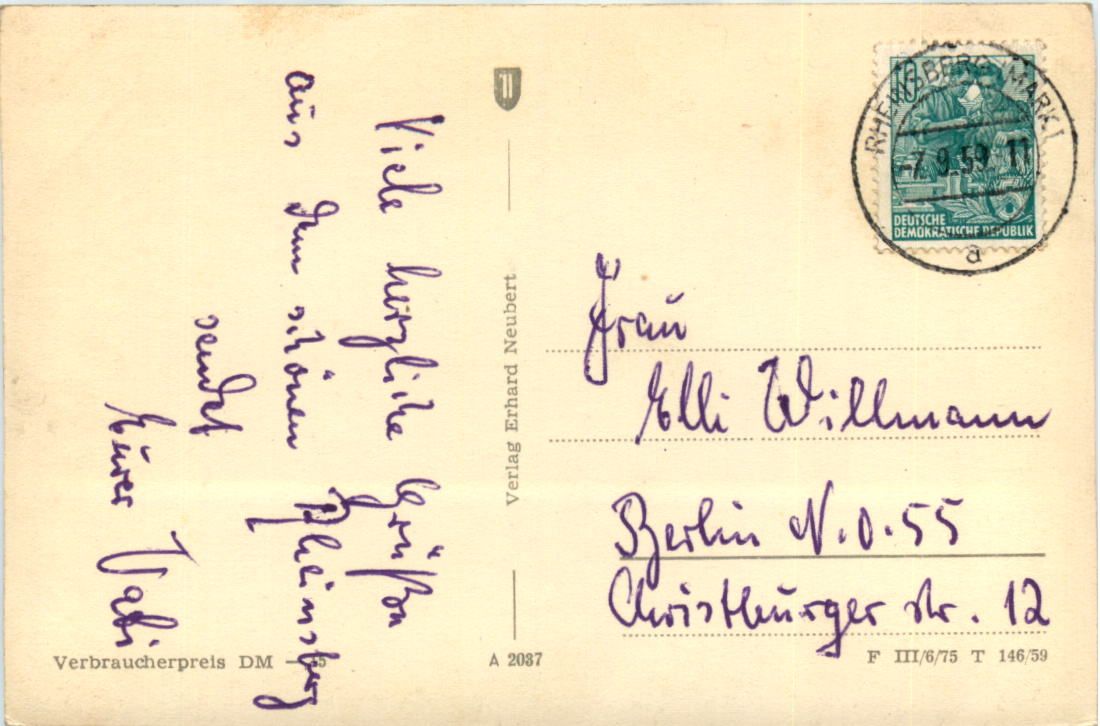 Viele herzliche Grüße
aus dem schönen Rheinsberg
sendet
Eurer
Verlag Erhard Neubert
10
DEUTSCHE
DEMOKRATISCHE REPUBLIK
RHEINSBERG MARKT
-7.9.59. 11
a
Frau
Elli Willmann
Berlin N.O.55
Christburger str. 12
Verbraucherpreis DM
A 2037
F III/6/75 T 146/59